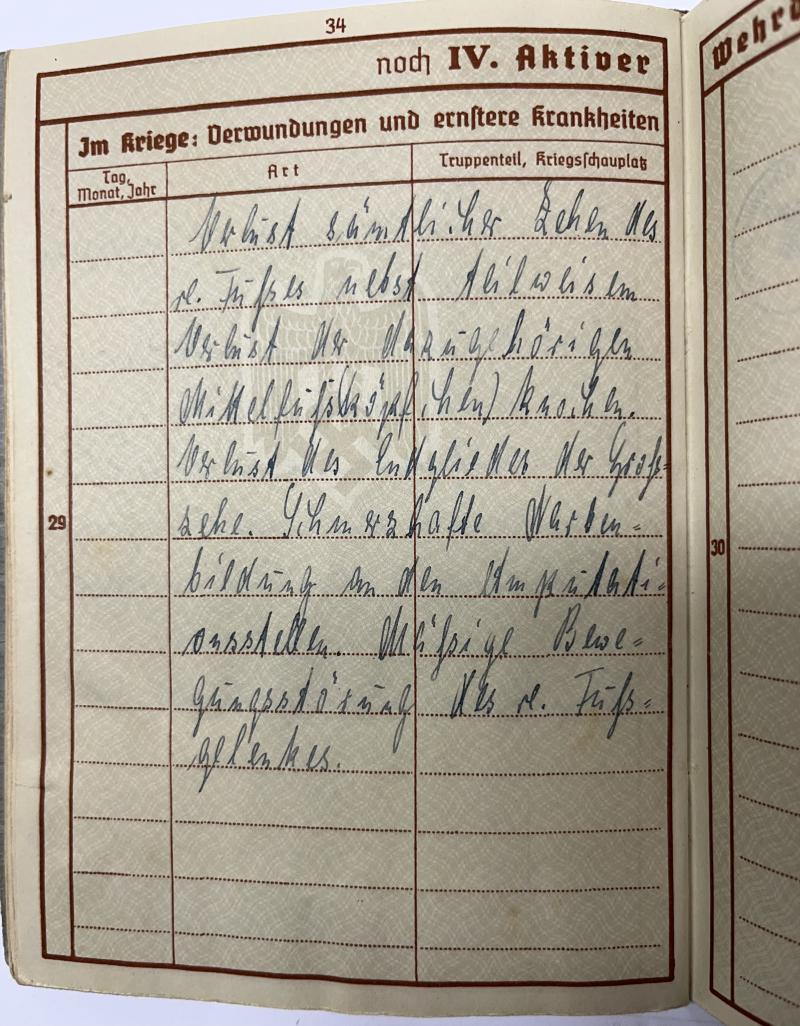 34
noch IV. Aktiver
Im Kriege: Verwundungen und ernstere Krankheiten
Tag, Monat, Jahr
Art
Truppenteil, Kriegsschauplatz
29
Verlust sämtlicher Zehen des
re. Fußes nebst teilweisem
Verlust der dazugehörigen
Mittelfuß(köpfchen) knochen.
Verlust des Endgliedes der Groß=
zehe. Schmerzhafte Narben=
bildung an den Amputati=
onsstellen. Mäßige Bewe=
gungsstörung des re. Fuß=
gelenkes.
30